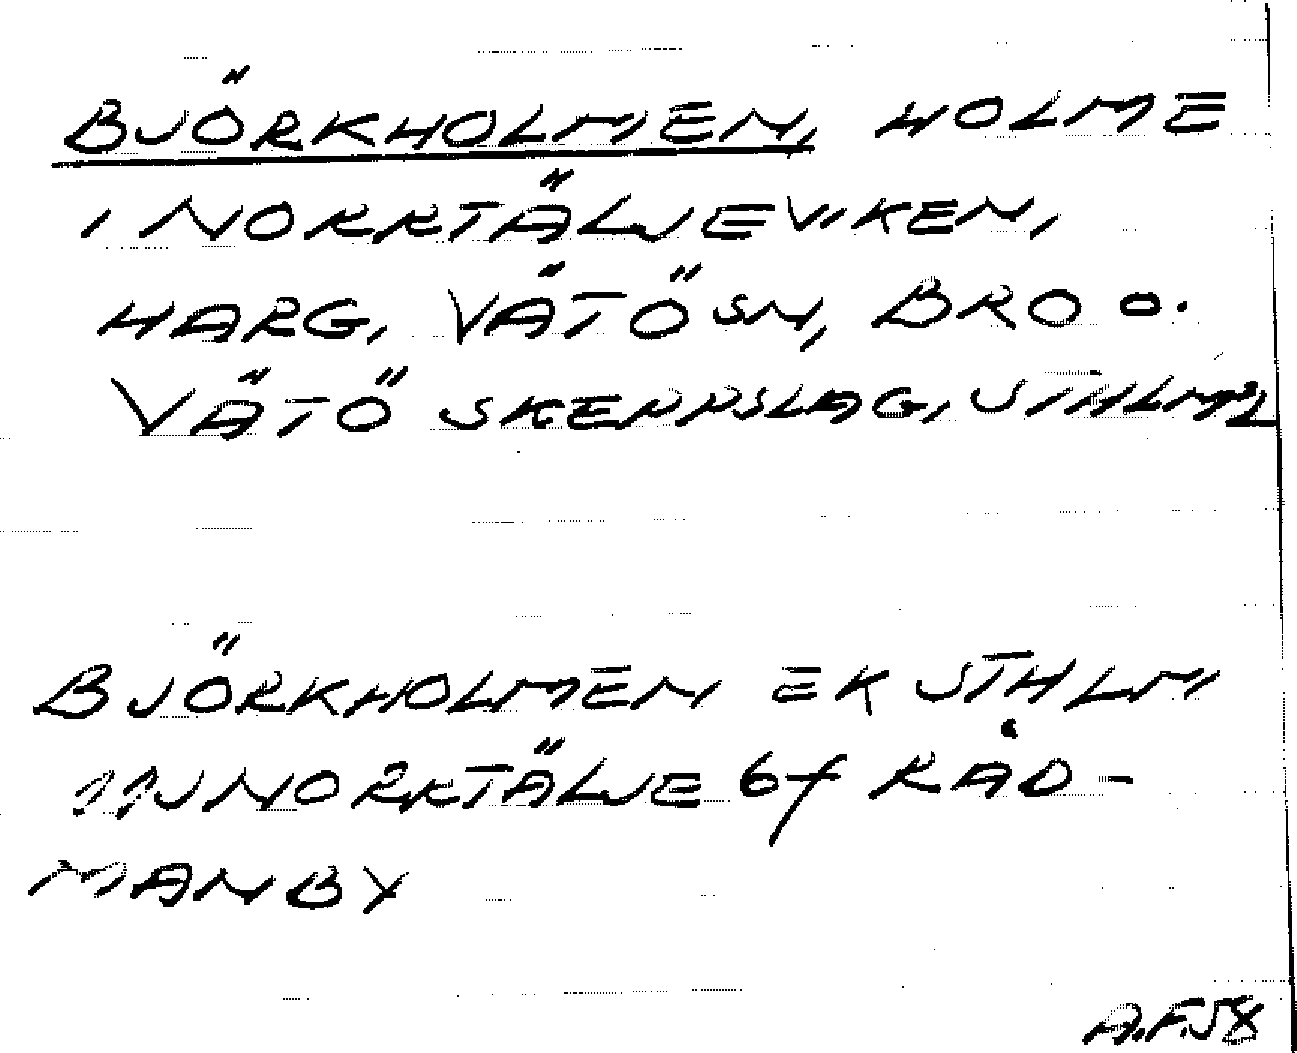 BJÖRKHOLMEN, HOLME
I NORRTÄLJEVIKEN,
HARG, VÄTÖ SN, BRO O.
VÄTÖ SKEPPSLAG, STHLM
BJÖRKHOLMEN EK STHLM
11J NORRTÄLJE 6f RÅD-
MANBY
A.F.58